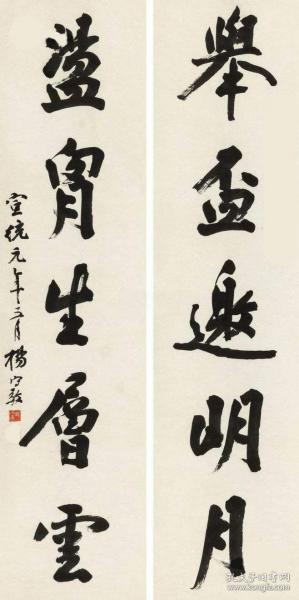 舉盃邀明月
盪胷生層雲
宣統元年三月楊守敬
孔夫子旧书网